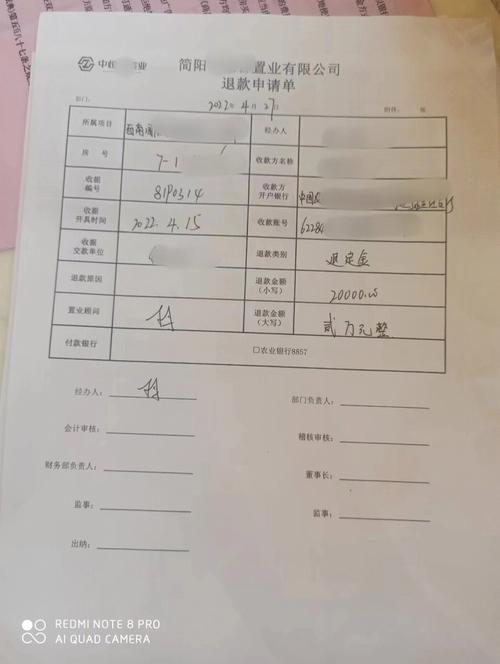 中恒 业 简阳 置业有限公司
退款申请单
部门: 2022年4月27日 附件: 张
所属项目 西南 经办人
房 号 7-1 收款方名称
收据编号 8190314 收款方开户银行 中国农
收据开具时间 2022.4.15 收款账号 62284
收据交款单位 退款类别 退定金
退款原因 退款金额(小写) 20000.00
置业顾问 退款金额(大写) 贰万元整
付款银行 □农业银行8857
经办人: 部门负责人:
会计审核: 稽核审核:
财务部负责人: 董事长:
监事: 监事:
出纳:
REDMI NOTE 8 PRO
AI QUAD CAMERA